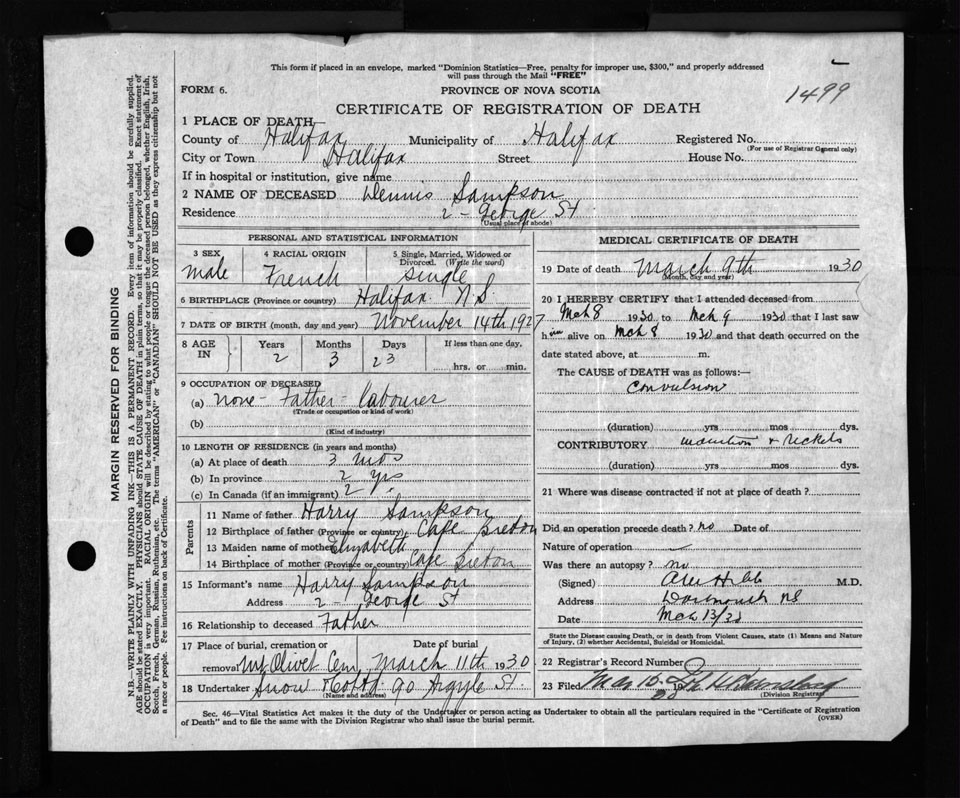 This form if placed in an envelope, marked "Dominion Statistics—Free, penalty for improper use, $300," and properly addressed
will pass through the Mail "FREE"
1499
FORM 6.
PROVINCE OF NOVA SCOTIA
CERTIFICATE OF REGISTRATION OF DEATH
1 PLACE OF DEATH—
County of Halifax Municipality of Halifax Registered No.
(For use of Registrar General only)
City or Town Halifax Street House No.
If in hospital or institution, give name
2 NAME OF DECEASED Dennis Sampson
Residence 2 - George St
(Usual place of abode)
PERSONAL AND STATISTICAL INFORMATION
3 SEX 4 RACIAL ORIGIN 5 Single, Married, Widowed or
Divorced. (Write the word)
male French single
6 BIRTHPLACE (Province or country) Halifax N.S.
7 DATE OF BIRTH (month, day and year) November 14th 1927
8 AGE IN Years Months Days If less than one day,
2 3 23 hrs. or min.
9 OCCUPATION OF DECEASED
(a) none - Father - labourer
(Trade or occupation or kind of work)
(b)
(Kind of industry)
10 LENGTH OF RESIDENCE (in years and months)
(a) At place of death 3 mos
(b) In province 2 yrs
(c) In Canada (if an immigrant) 2 y.
Parents
11 Name of father Harry Sampson
12 Birthplace of father (Province or country) Cape Breton
13 Maiden name of mother Elizabeth
14 Birthplace of mother (Province or country) Cape Breton
15 Informant's name Harry Sampson
Address 2 - George St
16 Relationship to deceased Father
17 Place of burial, cremation or Date of burial
removal Mt Olivet Cem March 11th 1930
18 Undertaker Snow & Co Ltd 90 Argyle St.
(Name and address)
MEDICAL CERTIFICATE OF DEATH
19 Date of death March 9th 1930
(Month, day and year)
20 I HEREBY CERTIFY that I attended deceased from
Mch 8 1930 to Mch 9 1930 that I last saw
him alive on Mch 8 1930 and that death occurred on the
date stated above, at m.
The CAUSE of DEATH was as follows:—
Convulsion
(duration) yrs mos dys.
CONTRIBUTORY & Rickets
(duration) yrs mos dys.
21 Where was disease contracted if not at place of death?
Did an operation precede death? no Date of
Nature of operation
Was there an autopsy? no
(Signed) M.D.
Address Dartmouth NS
Date Mch 13/30
State the Disease causing Death, or in death from Violent Causes, state (1) Means and Nature
of Injury, (2) whether Accidental, Suicidal or Homicidal.
22 Registrar's Record Number
23 Filed Mar 19
(Division Registrar)
Sec. 46—Vital Statistics Act makes it the duty of the Undertaker or person acting as Undertaker to obtain all the particulars required in the "Certificate of Registration
of Death" and to file the same with the Division Registrar who shall issue the burial permit.
(OVER)
MARGIN RESERVED FOR BINDING
N.B.—WRITE PLAINLY WITH UNFADING INK—THIS IS A PERMANENT RECORD. Every item of information should be carefully supplied.
AGE should be stated EXACTLY. PHYSICIANS should STATE CAUSE OF DEATH in plain terms, so that it may be properly classified. Exact statement of
OCCUPATION is very important. RACIAL ORIGIN will be described by stating to what people or tongue the deceased person belonged, whether English, Irish,
Scotch, French, German, Russian, Ruthenian, etc. The terms "AMERICAN" or "CANADIAN" SHOULD NOT BE USED as they express citizenship but not
a race or people. See instructions on back of Certificate.